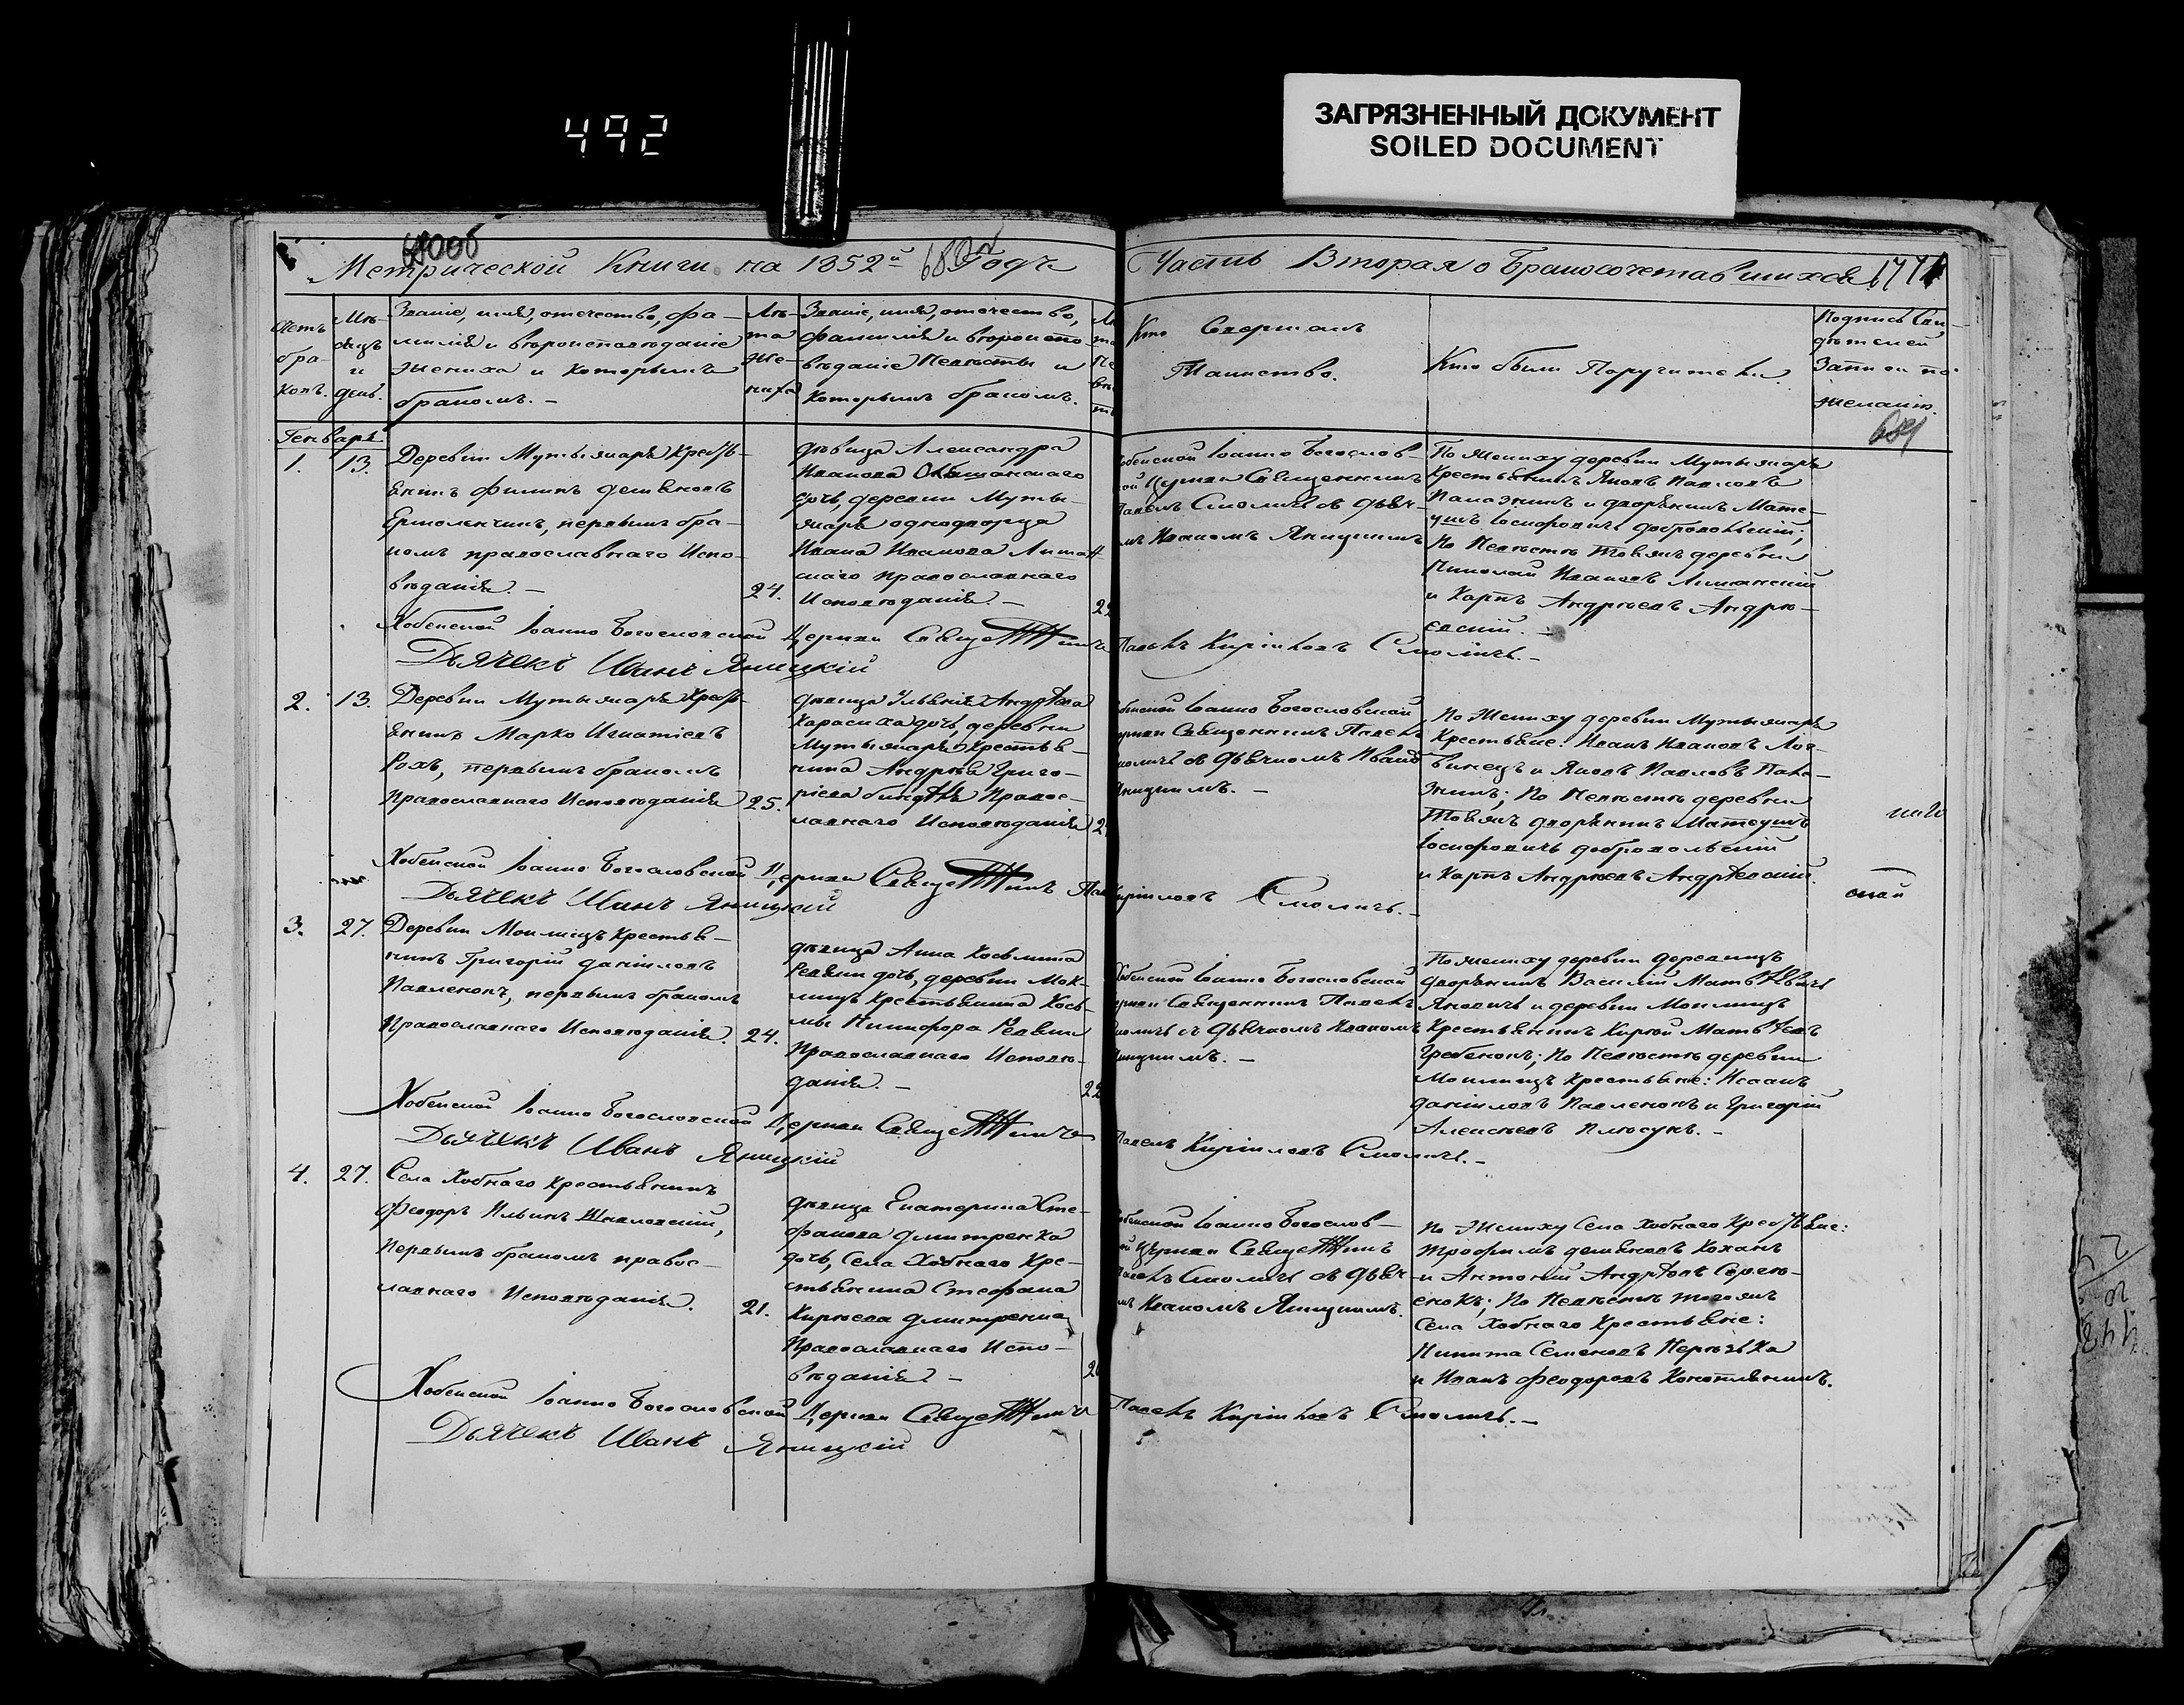 492
ЗАГРЯЗНЕННЫЙ ДОКУМЕНТ
SOILED DOCUMENT
Метрической Книги на 1852й Годъ
Часть Вторая о Бракосочетавшихся
Счетъ
бра
ковъ.
Мѣ-
сяцъ
и
день.
Званіе, имя, отечество, фа-
милія и вѣроисповѣданіе
жениха и которымъ
бракомъ. -
Лѣ-
та
же-
ниха
Званіе, имя, отечество,
фамилія и вѣроиспо-
вѣданіе Невѣсты и
которымъ бракомъ.
Кто Совершалъ
Таинство.
Кто были Поручители.
Подпись Сви-
дѣтелей
Записи по
желанію.
681
Генварь
1. 13.
Деревни Мутыжаръ Кресть-
янинъ Филипъ Демьяновъ
Ермоленчикъ, первымъ бра-
комъ православнаго Испо-
вѣданія. -
24.
дѣвица Александра
Иванова
дочь, деревни Муты-
жаръ однодворца
Ивана Иванова
скаго православнаго
Исповѣданія. -
Іоанно Богослов-
ой Церкви Священникъ
Павелъ Смоличъ съ дьяч-
мъ Иваномъ Яницкимъ
По Жениху деревни Мутыжаръ
Крестьянинъ Яковъ Павловъ
и дворянинъ Мате-
ушъ Іосифовичъ Добровольскій;
По Невѣстѣ Товяжъ деревни
Николай Ивановъ
и Карпъ Андреевъ Андре-
евскій. -
Хобенской Іоанно Богословской Церкви Священникъ Павелъ Кириловъ Смоличъ. -
Дьячекъ Иванъ Яницкій
2. 13.
Деревни Мутыжаръ Кресть-
янинъ Марко Игнатіевъ
Рохъ, первымъ бракомъ
Православнаго Исповѣданія
25.
дѣвица Ульянія Андреева
дочь, деревни
Мутыжаръ Крестья-
нина Андрея Григо-
ріева Правос-
лавнаго Исповѣданія
Іоанно Богословской
Церкви Священникъ Павелъ
Смоличъ съ Дьячкомъ Иваномъ
Яницкимъ. -
По Жениху деревни Мутыжаръ
Крестьяне: Иванъ Ивановъ Лог-
винецъ и Яковъ Павловъ
По Невѣстѣ деревни
Товяжъ дворянинъ Матеушъ
Іосифовичъ Добровольскій
и Карпъ Андреевъ Андреевскій.
Хобенской Іоанно Богословской Церкви Священникъ Павелъ Кириловъ Смоличъ. -
Дьячекъ Иванъ Яницкій
3. 27.
Деревни Моклищъ Крестья-
нинъ Григорій Даніиловъ
Павленокъ, первымъ бракомъ
Православнаго Исповѣданія.
24.
дѣвица Анна Косьмина
дочь, деревни Мок-
лищъ Крестьянина Кось-
мы Никифора
Православнаго Исповѣ-
данія. -
22
Хобенской Іоанно Богословской
Церкви Священникъ Павелъ
Смоличъ съ Дьячкомъ Иваномъ
Яницкимъ. -
По жениху деревни
дворянинъ Василій Матвѣевичъ
и деревни Моклищъ
Крестьянинъ Матвѣевъ
Гребенокъ; По Невѣстѣ деревни
Моклищъ Крестьяне: Исаакъ
Даніиловъ Павленокъ и Григорій
Алексѣевъ Плюсунъ. -
Хобенской Іоанно Богословской Церкви Священникъ Павелъ Кириловъ Смоличъ. -
Дьячекъ Иванъ Яницкій
4. 27.
Села Хобнаго Крестьянинъ
Феодоръ Ильинъ Шкловскій,
Первымъ бракомъ правос-
лавнаго Исповѣданія.
21.
дѣвица Екатерина Сте-
фанова Дмитренка
дочь, Села Хобнаго Кре-
стьянина Стефана
Кирѣева Дмитренка
Православнаго Испо-
вѣданія -
Іоанно Богослов-
ой Церкви Священникъ
Павелъ Смоличъ съ дьяч-
мъ Иваномъ Яницкимъ.
По Жениху Села Хобнаго Крестьяне:
Трофимъ Демьяновъ Коханъ
и Антоній Андреевъ Серге-
енокъ; По Невѣстѣ тогожъ
Села Хобнаго Крестьяне:
Никита Семеновъ
и Иванъ Феодоровъ Коноплянникъ.
Хобенской Іоанно Богословской Церкви Священникъ Павелъ Кириловъ Смоличъ. -
Дьячекъ Иванъ Яницкій